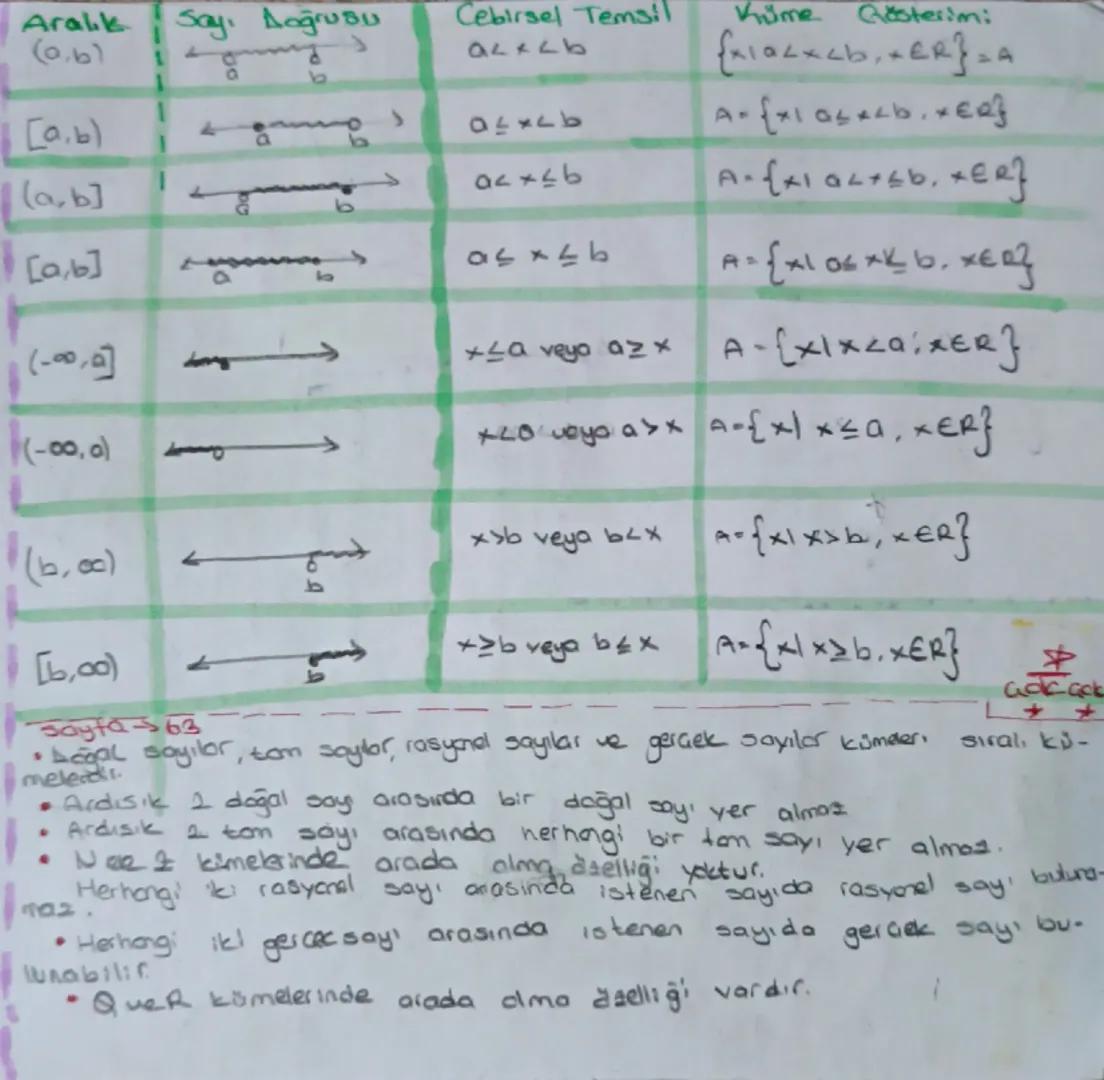 Aralık Sayı Doğrusu Cebirsel Temsil Küme Gösterimi
(a,b) a b a<x<b {x|a<x<b, x∈R}=A
[a,b) a b a≤x<b A={x| a≤x<b, x∈R}
(a,b] a b a<x≤b A={x| a<x≤b, x∈R}
[a,b] a b a≤x≤b A={x| a≤x≤b, x∈R}
(-∞,a] x≤a veya a≥x A={x|x<a, x∈R}
(-∞,a) x<a veya a>x A={x| x≤a, x∈R}
(b,∞) b x>b veya b<x A={x| x>b, x∈R}
[b,∞) b x≥b veya b≤x A={x| x≥b, x∈R}
Sayfa → 63
• Doğal sayılar, tam sayılar, rasyonel sayılar ve gerçek sayılar kümeleri sıralı kü-
melerdir.
• Ardışık 2 doğal sayı arasında bir doğal sayı yer almaz
• Ardışık 2 tam sayı arasında herhangi bir tam sayı yer almaz.
• N ve Z kümelerinde arada olma özelliği yoktur.
Herhangi iki rasyonel sayı arasında istenen sayıda rasyonel sayı buluna-
maz.
• Herhangi iki gerçek sayı arasında istenen sayıda gerçek sayı bu-
lunabilir.
• Q ve R kümelerinde arada olma özelliği vardır.